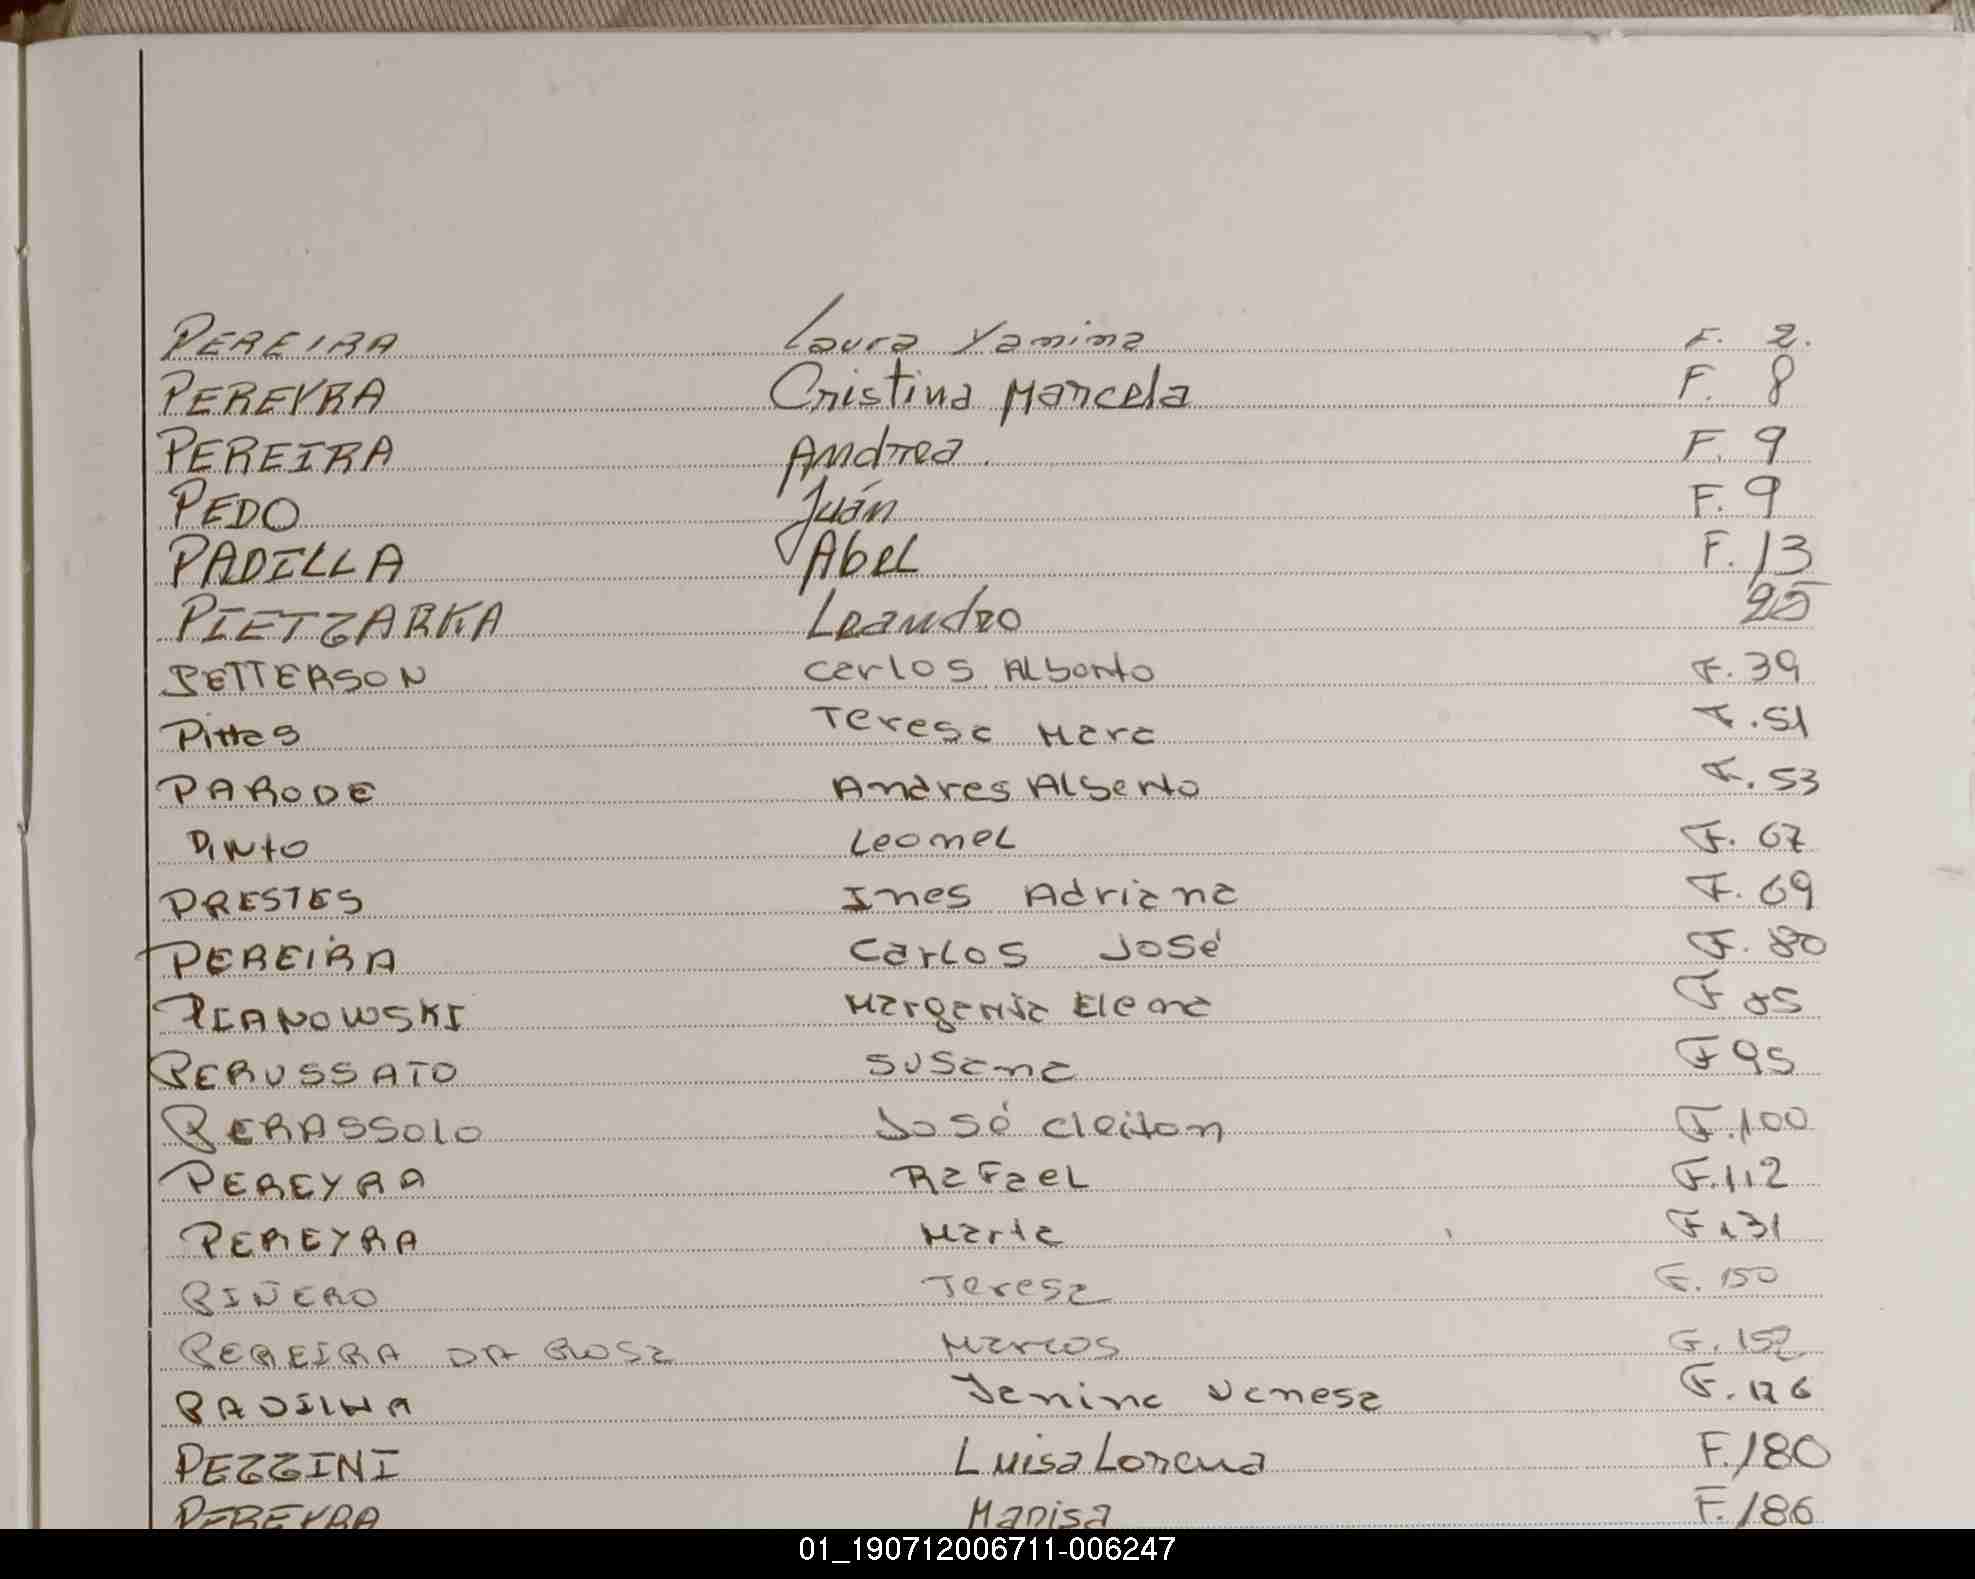 PEREIRA Laura Yamina F. 2.
PEREYRA Cristina Marcela F. 8
PEREIRA Andrea. F. 9
PEDO Juán F. 9
PADILLA Abel F. 13
PIETZARKA Leandro 25
PETTERSON Carlos Alberto F. 39
Pittas Teresa Mara F. 51
PARODE Andres Alberto F. 53
Pinto Leonel F. 67
PRESTES Ines Adriana F. 69
PEREIRA Carlos José F. 80
PIANOWSKI Margarita Elena F 85
PERUSSATO Susana F 95
PERASSOLO José Cleiton F. 100
PEREYRA Rafael F. 112
PEREYRA Marta F 131
PIÑERO Teresa F. 150
PEREIRA DA ROSA Marcos F. 152
PADILHA Yanina Vanesa F. 176
PEZZINI Luisa Lorena F. 180
PEREYRA Marisa F. 186
01_190712006711-006247